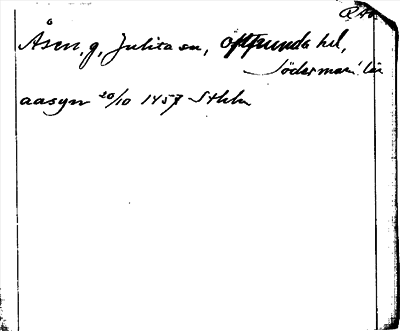 Åsen, g, Julita sn, Oppunda hd,
Söderman. län
aasyn 20/10 1457 Sthlm